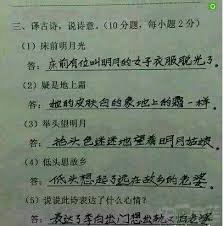 三、译古诗，说诗意。（10分题，每小题2分）
（1）床前明月光
答：床前有位叫明月的女子衣服脱光了。
（2）疑是地上霜
答：她的皮肤白的象地上的霜一样。
（3）举头望明月
答：抬头色迷迷地望着明月姑娘
（4）低头思故乡
答：低头想起了远在故乡的老婆。
（5）说说此诗表达了什么心情？
答：表达了李白出门想出轨又怕老婆